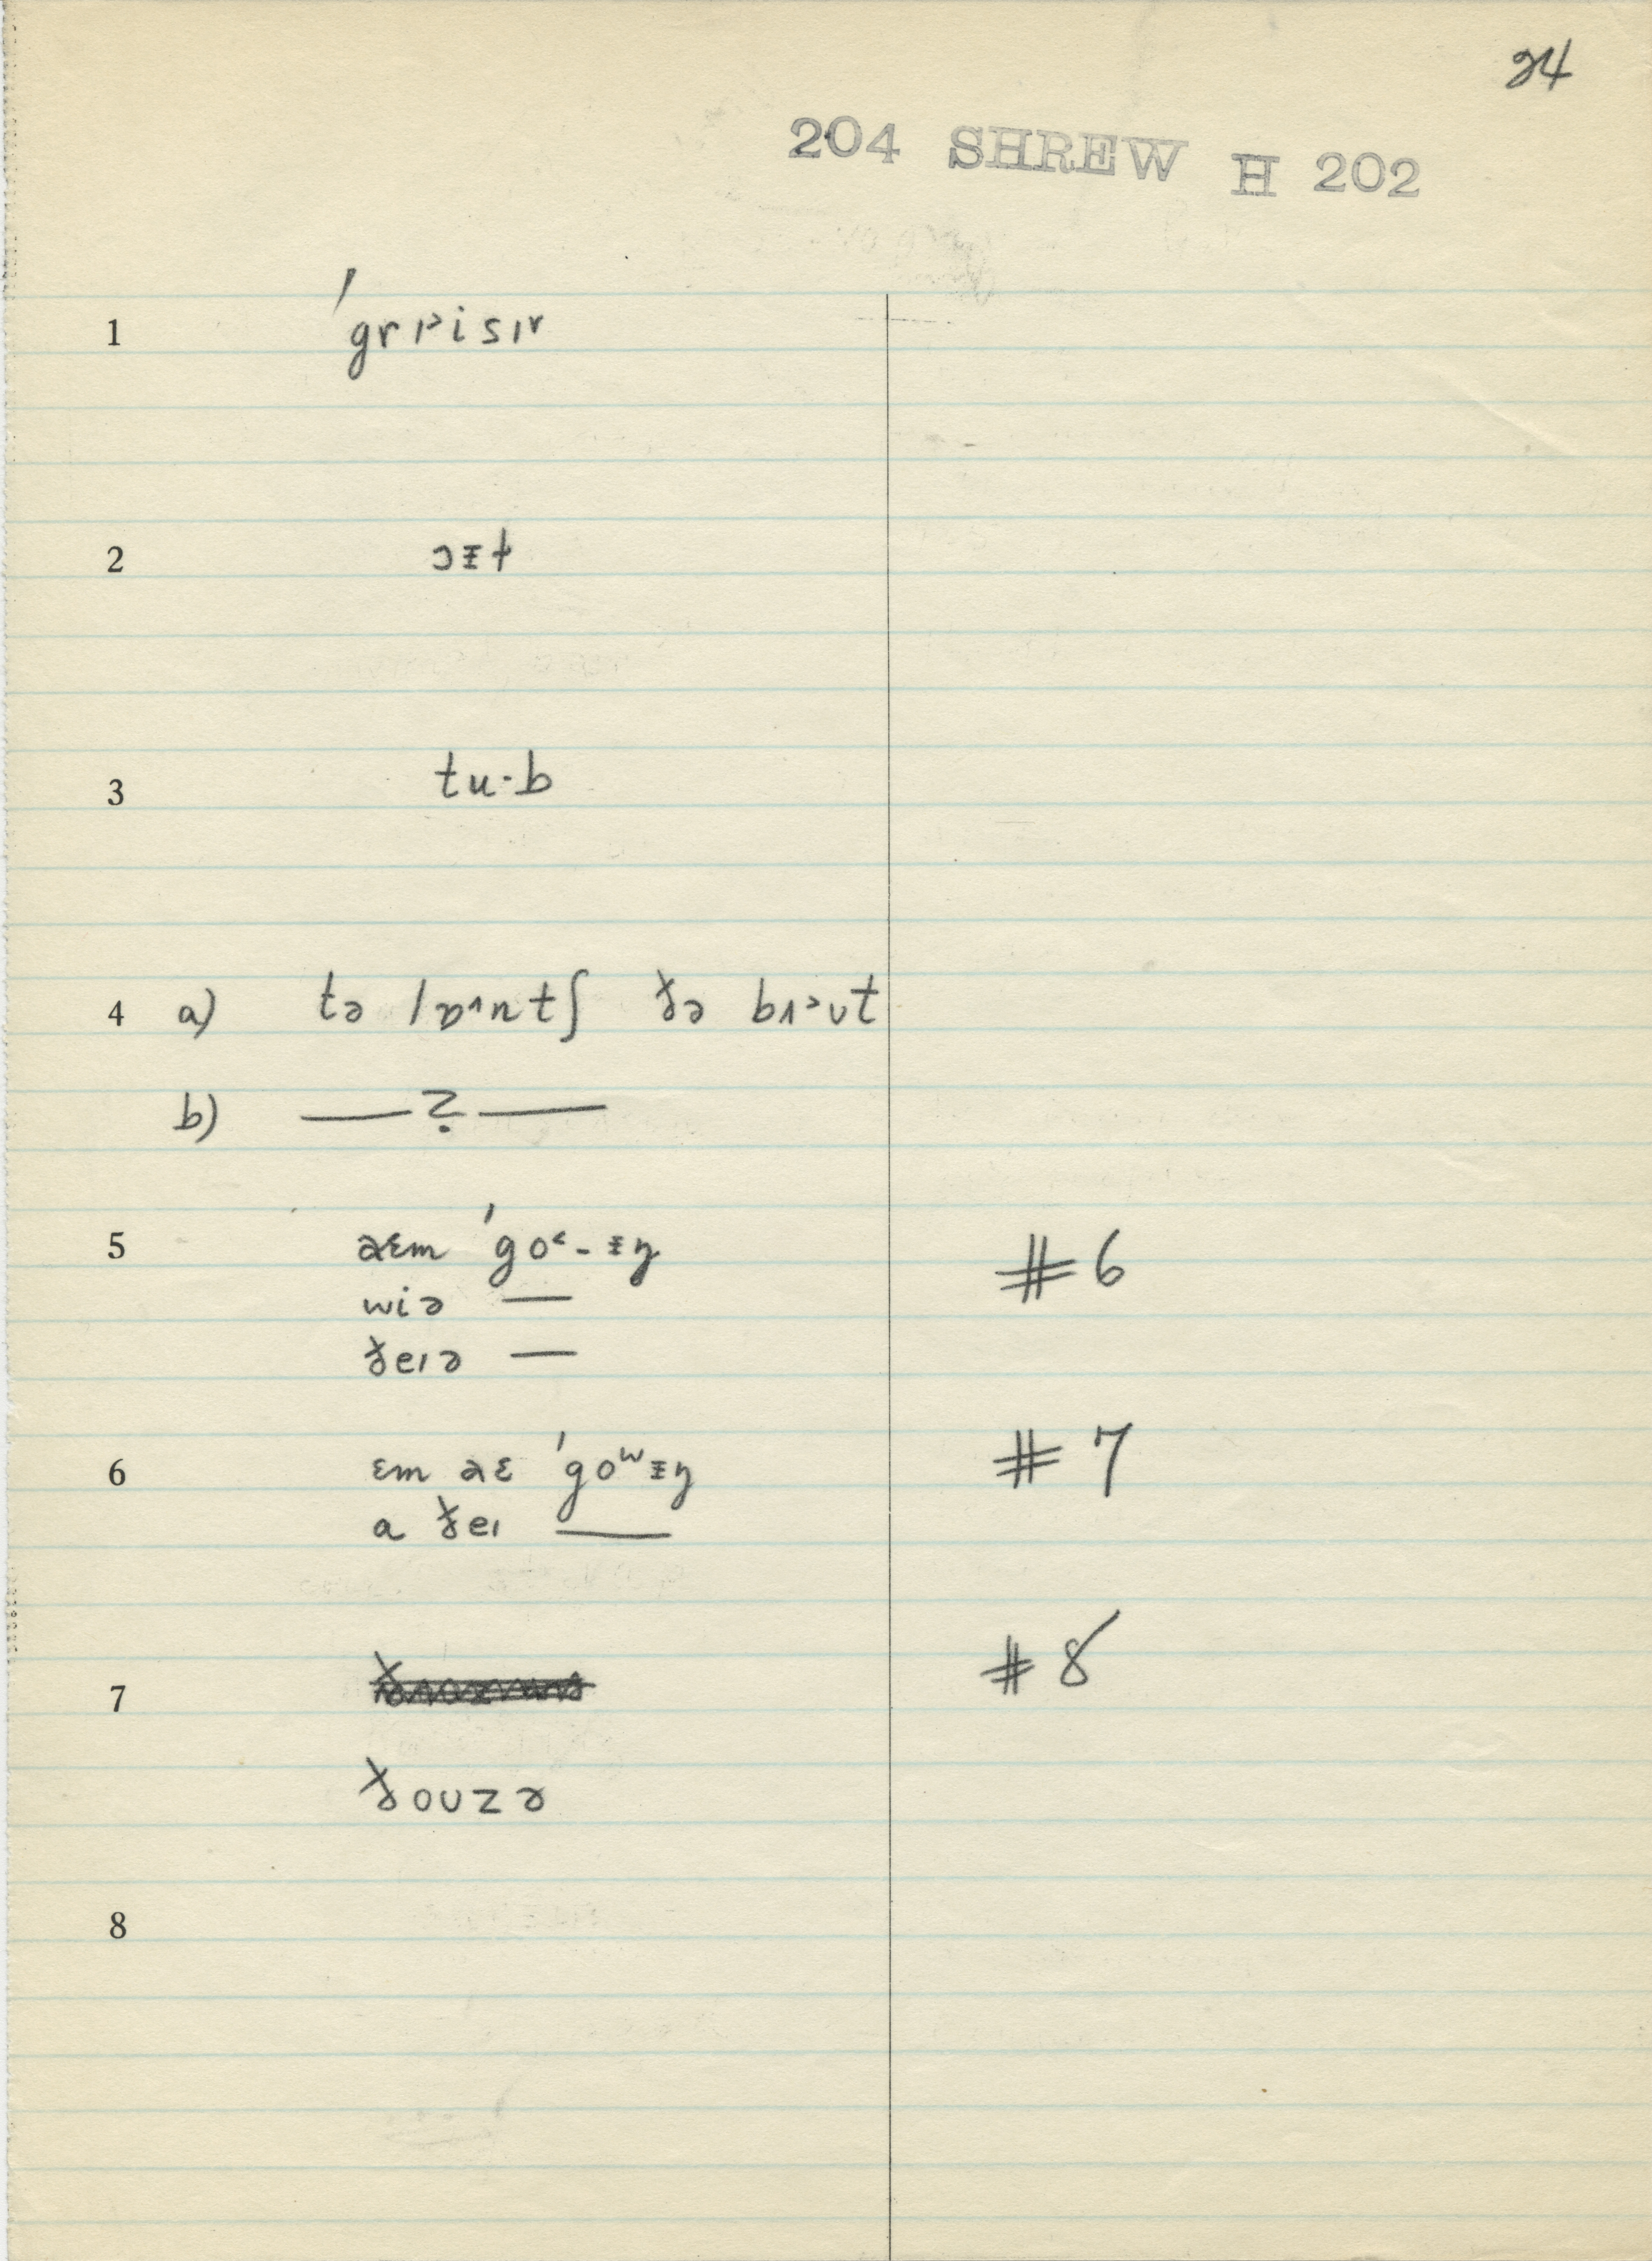 24
204 SHREW H 202
1 ˈgrɪ˃isɪr
2 ɔᵻt
3 tu·b
4 a) tə lɒ˄ntʃ ðə bɪ˃ʊt
b) —?—
5 əɛm ˈgo˂-ᵻŋ #6
wiə —
ðeɪə —
6 ɛm əɛ ˈgoʷᵻŋ #7
a ðeɪ —
7 #8
ðoʊzə
8